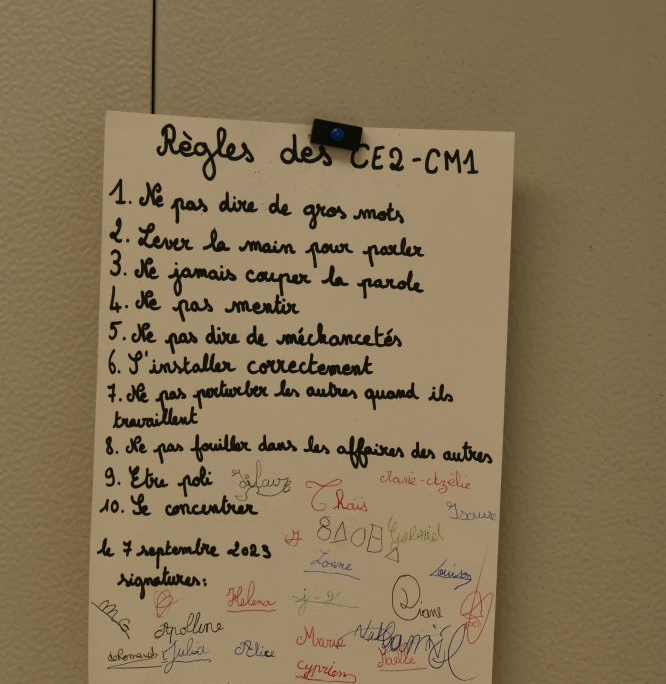 Règles des CE2-CM1
1. Ne pas dire de gros mots
2. Lever la main pour parler
3. Ne jamais couper la parole
4. Ne pas mentir
5. Ne pas dire de méchancetés
6. S'installer correctement
7. Ne pas perturber les autres quand ils
travaillent
8. Ne pas fouiller dans les affaires des autres
9. Etre poli
Marie-Azélie
10. Se concentrer
Thaïs
Isaure
Gabriel
le 7 septembre 2023
Zoane
Louison
signatures:
Helena
j-g
Diane
Apolline
Marie
deRomanet Julia
Alice
Gamil
Joëlle
cyprien